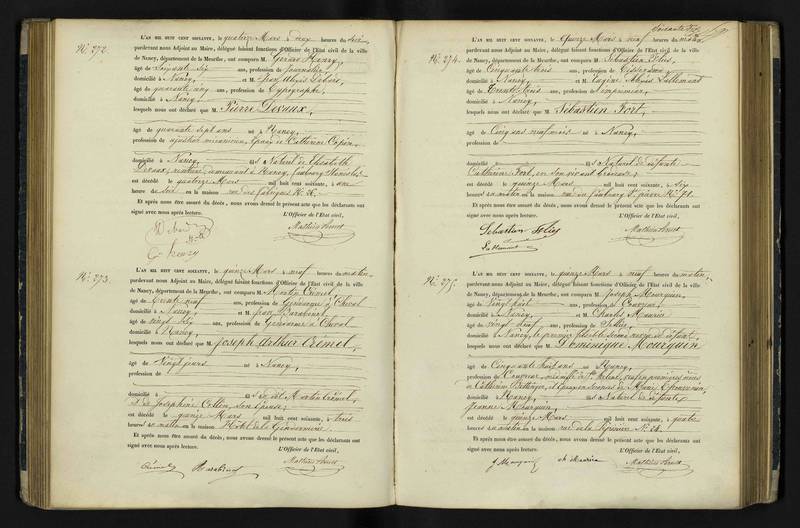 N.° 272.
L'AN MIL HUIT CENT SOIXANTE, le quatorze Mars à deux heures du soir
pardevant nous Adjoint au Maire, délégué faisant fonctions d'Officier de l'Etat civil de la ville
de Nancy, département de la Meurthe, ont comparu M. Gérard Henry,
âgé de soixante six ans, profession de Journalier
domicilié à Nancy, et M. Jean
âgé de quarante ans, profession de Typographe,
domicilié à Nancy,
lesquels nous ont déclaré que M. Pierre Devaux,
âgé de quarante sept ans né à Nancy,
profession de ajusteur mécanicien, Epoux de Catherine
domicilié à Nancy, fils Naturel de Elisabeth
Devaux, rentière, demeurant à Nancy, faubourg Stanislas
est décédé le quatorze Mars mil huit cent soixante, à une
heure de soir en la maison rue des fabriques N.°
Et après nous être assuré du décès, nous avons dressé le présent acte que les déclarants ont
signé avec nous après lecture. L'Officier de l'Etat civil,
N.° 273.
L'AN MIL HUIT CENT SOIXANTE, le quinze Mars à neuf heures du matin
pardevant nous Adjoint au Maire, délégué faisant fonctions d'Officier de l'Etat civil de la ville
de Nancy, département de la Meurthe, ont comparu M. Martin Crémel,
âgé de trente neuf ans, profession de Gendarme à Cheval
domicilié à Nancy, et M. Jean
âgé de vingt six ans, profession de Gendarme à Cheval
domicilié à Nancy,
lesquels nous ont déclaré que M. Joseph Arthur Crémel,
âgé de Vingt jours né à Nancy,
profession de
domicilié à fils de Martin Crémel,
& de Joséphine Collin, son Epouse,
est décédé le quinze Mars mil huit cent soixante, à trois
heures du matin en la maison Hôtel de la Gendarmerie
Et après nous être assuré du décès, nous avons dressé le présent acte que les déclarants ont
signé avec nous après lecture. L'Officier de l'Etat civil,
Crémel
N.° 274.
L'AN MIL HUIT CENT SOIXANTE, le quinze Mars à neuf heures du matin
pardevant nous Adjoint au Maire, délégué faisant fonctions d'Officier de l'Etat civil de la ville
de Nancy, département de la Meurthe, ont comparu M. Sébastien
âgé de Cinquante trois ans, profession de Tisserand
domicilié à Nancy, et M. Eugène Alexis Lallemant
âgé de trente trois ans, profession d'imprimeur,
domicilié à Nancy,
lesquels nous ont déclaré que M. Sébastien Fort,
âgé de Cinq ans neuf mois né à Nancy,
profession de
domicilié fils Naturel de défunte
Catherine Fort, en son vivant brodeuse,
est décédé le quinze Mars, mil huit cent soixante, à six
heures du matin en la maison rue du faubourg St. pierre N.° 71.
Et après nous être assuré du décès, nous avons dressé le présent acte que les déclarants ont
signé avec nous après lecture. L'Officier de l'Etat civil,
Sébastien
Lallemant
N.° 275.
L'AN MIL HUIT CENT SOIXANTE, le quinze Mars à neuf heures du matin
pardevant nous Adjoint au Maire, délégué faisant fonctions d'Officier de l'Etat civil de la ville
de Nancy, département de la Meurthe, ont comparu M. Joseph Mourquin,
âgé de vingt huit ans, profession de Couvreur,
domicilié à Nancy, et M. Charles Maurice
âgé de vingt neuf ans, profession de Sellier,
domicilié à Nancy, le premier fils le deuxième neveu du défunt,
lesquels nous ont déclaré que M. Dominique Mourquin
âgé de Cinquante huit ans né à Nancy,
profession de Couvreur, veuf en premières noces
de Catherine et époux en secondes de Marie
domicilié à Nancy, fils Naturel de défunte
Jeanne Mourquin,
est décédé le quinze Mars mil huit cent soixante, à quatre
heures du matin en la maison rue de la Pépinière N.° 24.
Et après nous être assuré du décès, nous avons dressé le présent acte que les déclarants ont
signé avec nous après lecture. L'Officier de l'Etat civil,
J Mourquin ch Maurice